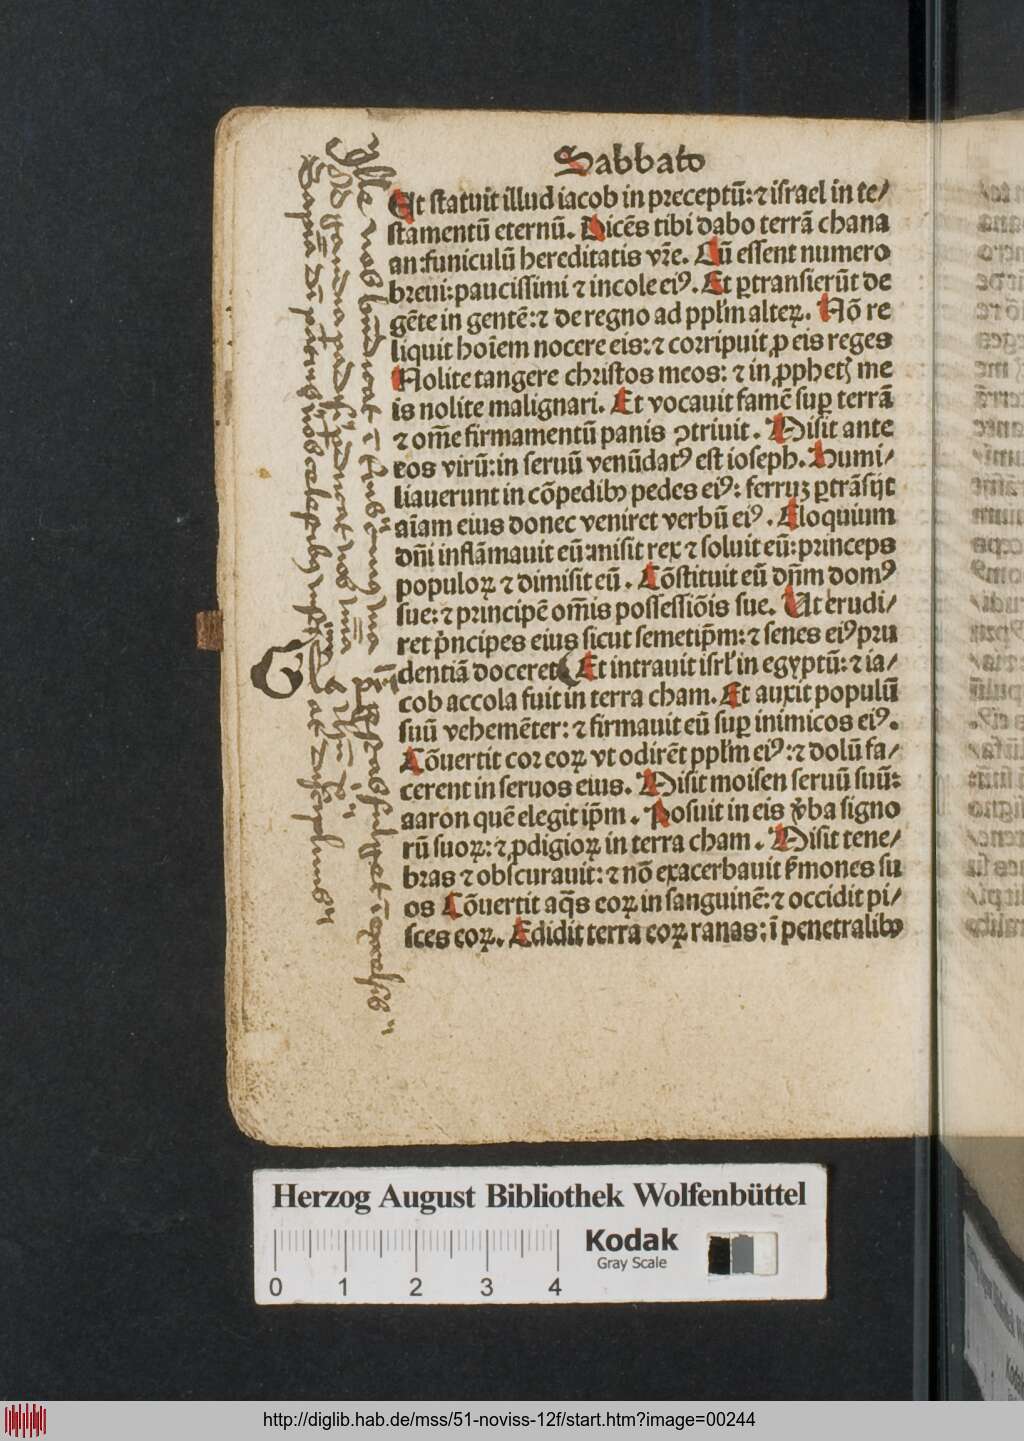 Sabbato
Et statuit illud iacob in preceptū: ⁊ israel in te/
stamentū eternū. Dicēs tibi dabo terrā chana
an: funiculū hereditatis vr̄e. Cū essent numero
breui: paucissimi ⁊ incole eiꝰ. Et ꝑtransierūt de
gēte in gentē: ⁊ de regno ad ppl̄m alteꝝ. Nō re
liquit hoīem nocere eis: ⁊ corripuit ꝓ eis reges
Nolite tangere christos meos: ⁊ in ꝓphetꝭ me
is nolite malignari. Et vocauit famē suꝑ terrā
⁊ om̄e firmamentū panis ꝯtriuit. Misit ante
eos virū: in seruū venūdatꝰ est ioseph. Humi/
liauerunt in cōpedibꝫ pedes eiꝰ: ferruꝫ ꝑtrāsijt
aīam eius donec veniret verbū eiꝰ. Eloquium
dn̄i inflāmauit eū: misit rex ⁊ soluit eū: princeps
populoꝝ ⁊ dimisit eū. Cōstituit eū dn̄m domꝰ
sue: ⁊ principē om̄is possessiōis sue. Ut erudi/
ret p̄ncipes eius sicut semetip̄m: ⁊ senes eiꝰ pru
dentiā doceret Et intrauit isrl̄ in egyptū: ⁊ ia/
cob accola fuit in terra cham. Et auxit populū
suū vehemēter: ⁊ firmauit eū suꝑ inimicos eiꝰ.
Cōuertit cor eoꝝ vt odirēt ppl̄m eiꝰ: ⁊ dolū fa/
cerent in seruos eius. Misit moisen seruū suū:
aaron quē elegit ip̄m. Posuit in eis v̄ba signo
rū suoꝝ: ⁊ ꝓdigioꝝ in terra cham. Misit tene/
bras ⁊ obscurauit: ⁊ nō exacerbauit s̄mones su
os Cōuertit aq̄s eoꝝ in sanguinē: ⁊ occidit pi/
sces eoꝝ. Edidit terra eoꝝ ranas: ī penetralibꝫ
Herzog August Bibliothek Wolfenbüttel
Kodak
Gray Scale
0 1 2 3 4
http://diglib.hab.de/mss/51-noviss-12f/start.htm?image=00244